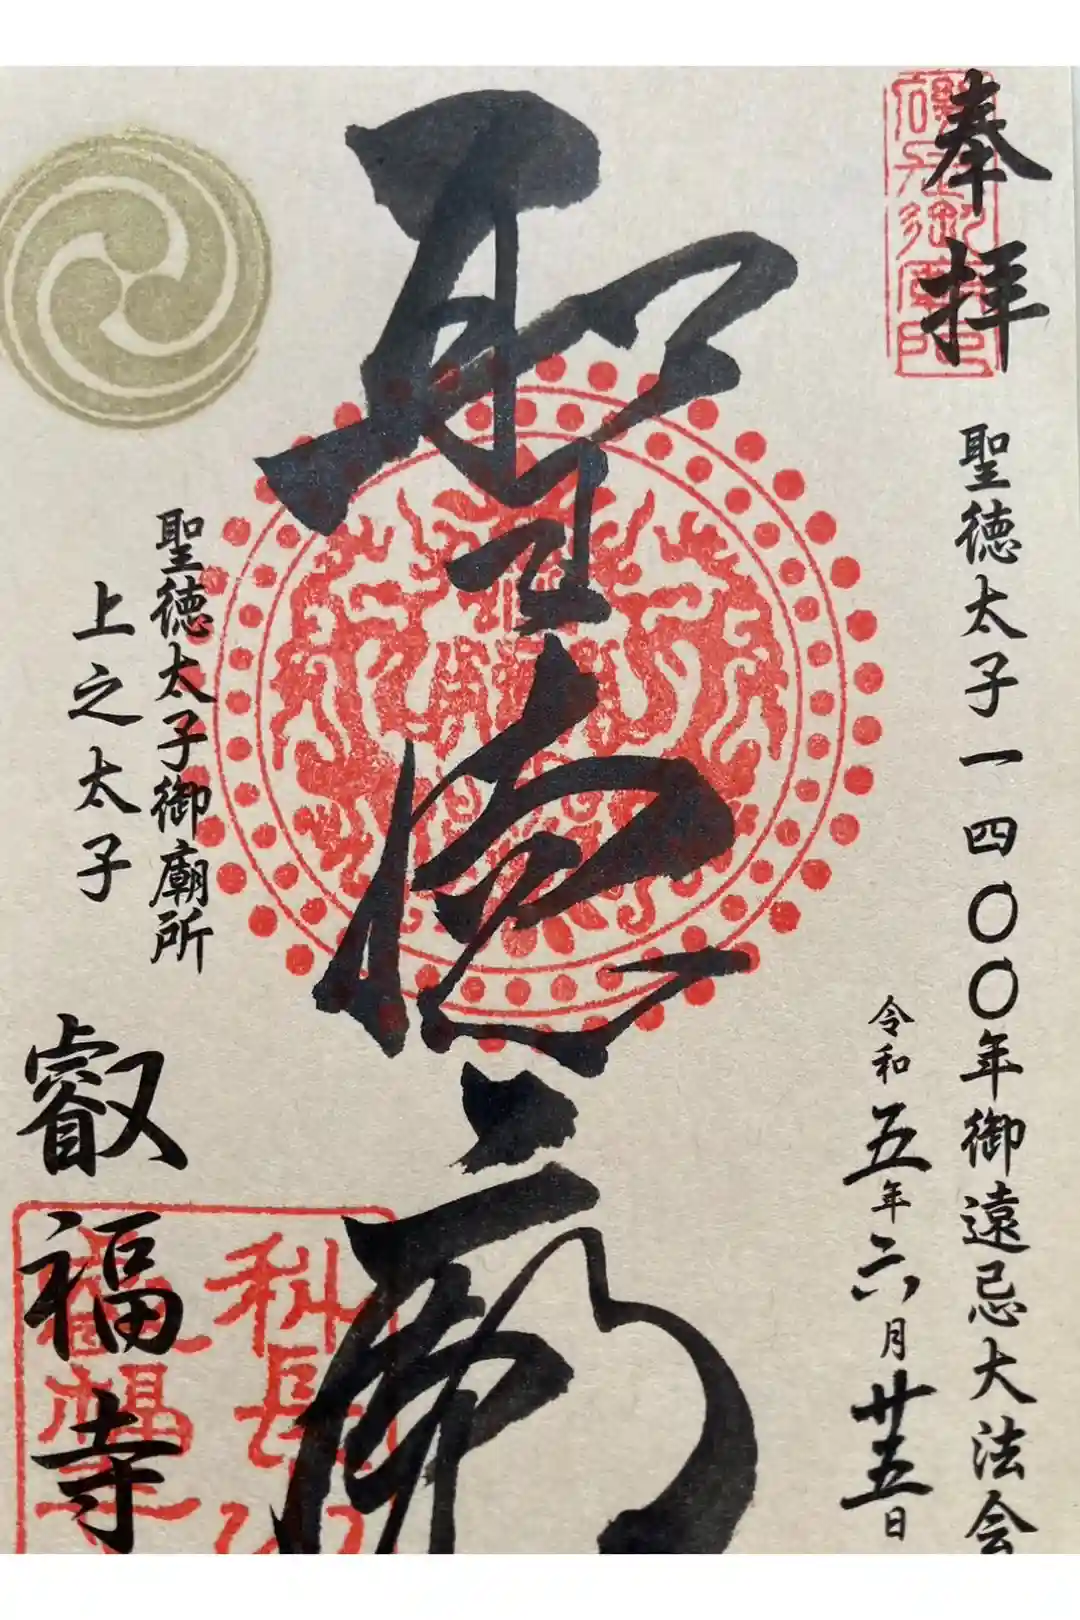 奉拝
聖徳太子一四〇〇年御遠忌大法会
令和五年六月廿五日
聖徳廟
聖徳太子御廟所
上之太子
叡福寺
科長